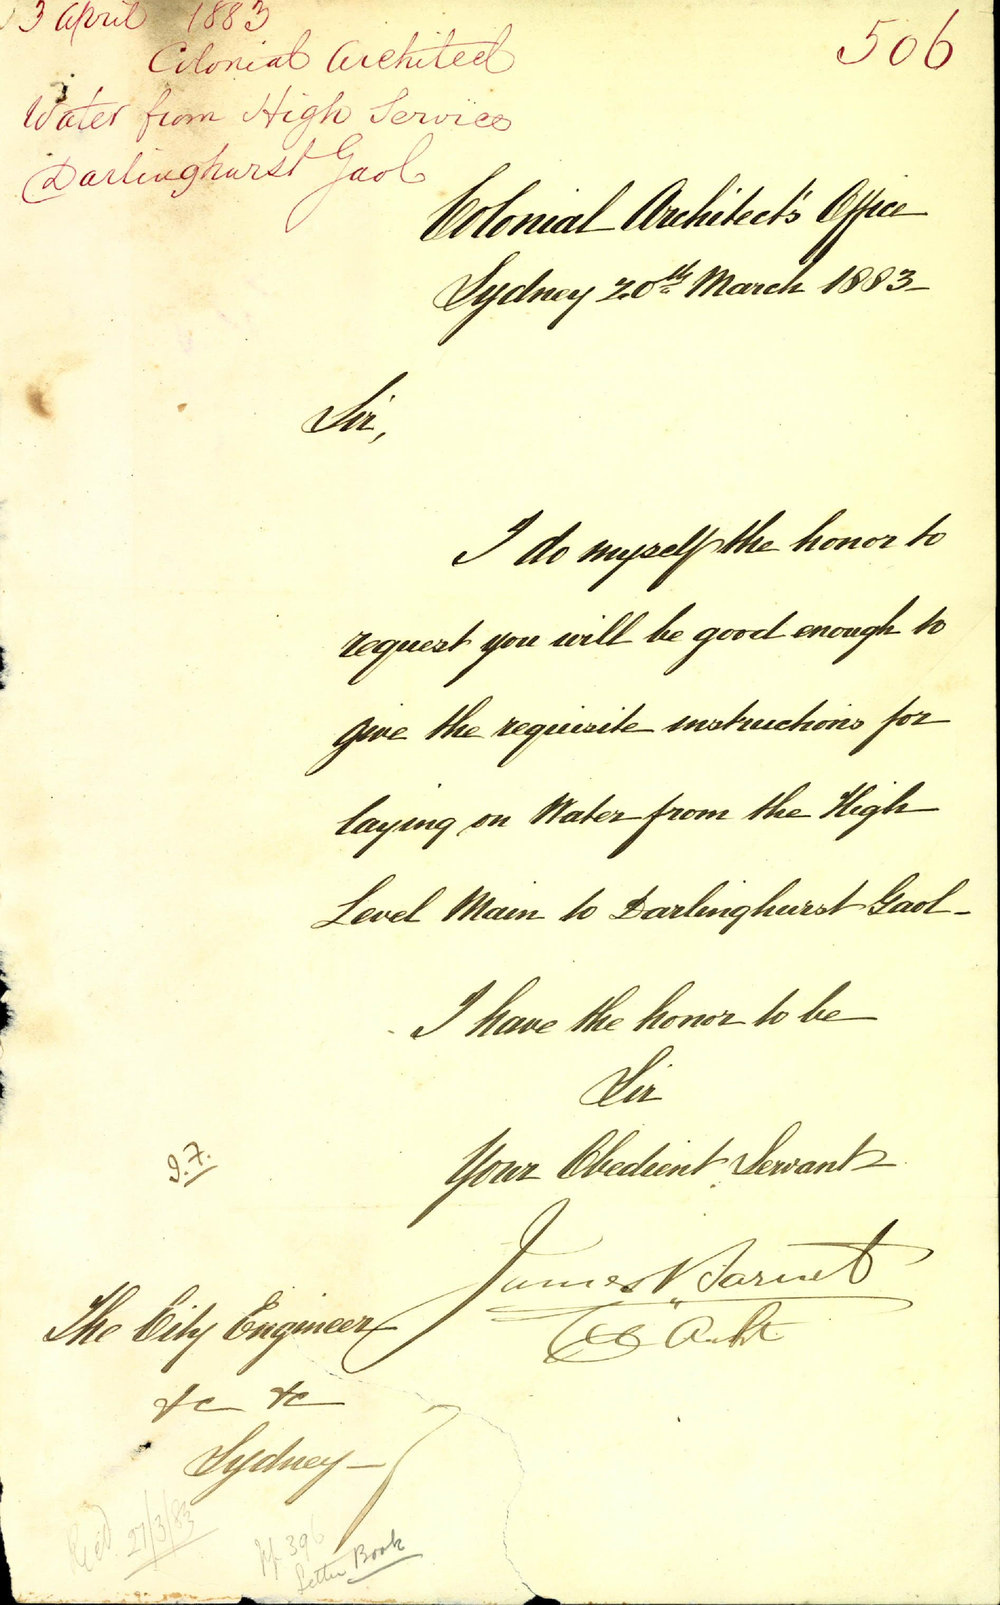 3 April 1883
506
Colonial Architect
Water from High Service
Darlinghurst Gaol
Colonial Architect's Office
Sydney 20th March 1883
Sir,
I do myself the honor to
request you will be good enough to
give the requisite instructions for
laying on Water from the High
Level Main to Darlinghurst Gaol-
I have the honor to be
Sir
Your Obedient Servant
James Barnet
Col Archt
The City Engineer
&c &c
Sydney-
Recd 27/3/83
396
Letter Book